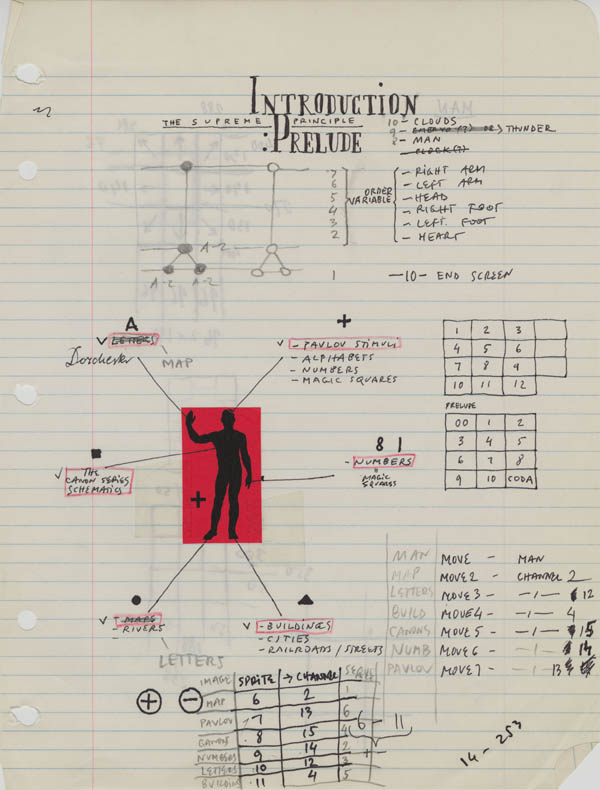 INTRODUCTION
THE SUPREME PRINCIPLE
:PRELUDE
10 - CLOUDS
9 - THUNDER
2 - MAN
CLOCK(?)
7
6
5
4
3
2
ORDER
VARIABLE
- RIGHT ARM
- LEFT ARM
- HEAD
- RIGHT FOOT
- LEFT FOOT
- HEART
A-2
A-2 A-2
1 —10— END SCREEN
A
✓ LETTERS
Dorchester MAP
+
✓ - PAVLOV STIMULI
- ALPHABETS
- NUMBERS
- MAGIC SQUARES
1 2 3
4 5 6
7 8 9
10 11 12
PRELUDE
00 1 2
3 4 5
6 7 8
9 10 CODA
✓ THE
CANON SERIES
SCHEMATICS
+
8 1
- NUMBERS
- MAGIC
SQUARES
✓ - MAPS
- RIVERS
LETTERS
✓ - BUILDINGS
- CITIES
- RAILROADS / STREETS
MAN MOVE - MAN
MAP MOVE2 - CHANNEL 2
LETTERS MOVE3 - —1— 12
BUILD MOVE4 - —1— 4
CANONS MOVE5 - —1— 15
NUMB MOVE6 - —1— 14
PAVLOV MOVE7 - —1— 13
+ −
IMAGE SPRITE → CHANNEL
MAP 6 2 1
PAVLOV 7 13 6
CANONS 8 15 4
NUMBERS 9 14 2
LETTERS 10 12 3
BUILDING 11 4 5
6 - 11
+ -
14 - 253